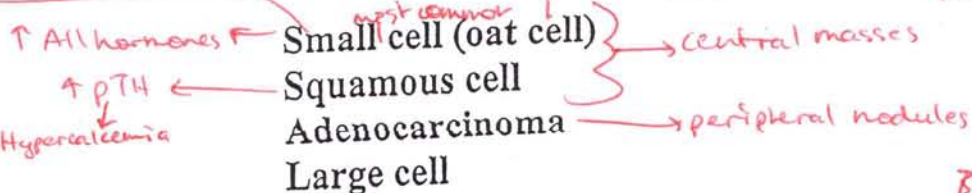 most common
↑ All hormones ← Small cell (oat cell) → central masses
↑ pTH ← Squamous cell
Hypercalcemia
Adenocarcinoma → peripheral nodules
Large cell